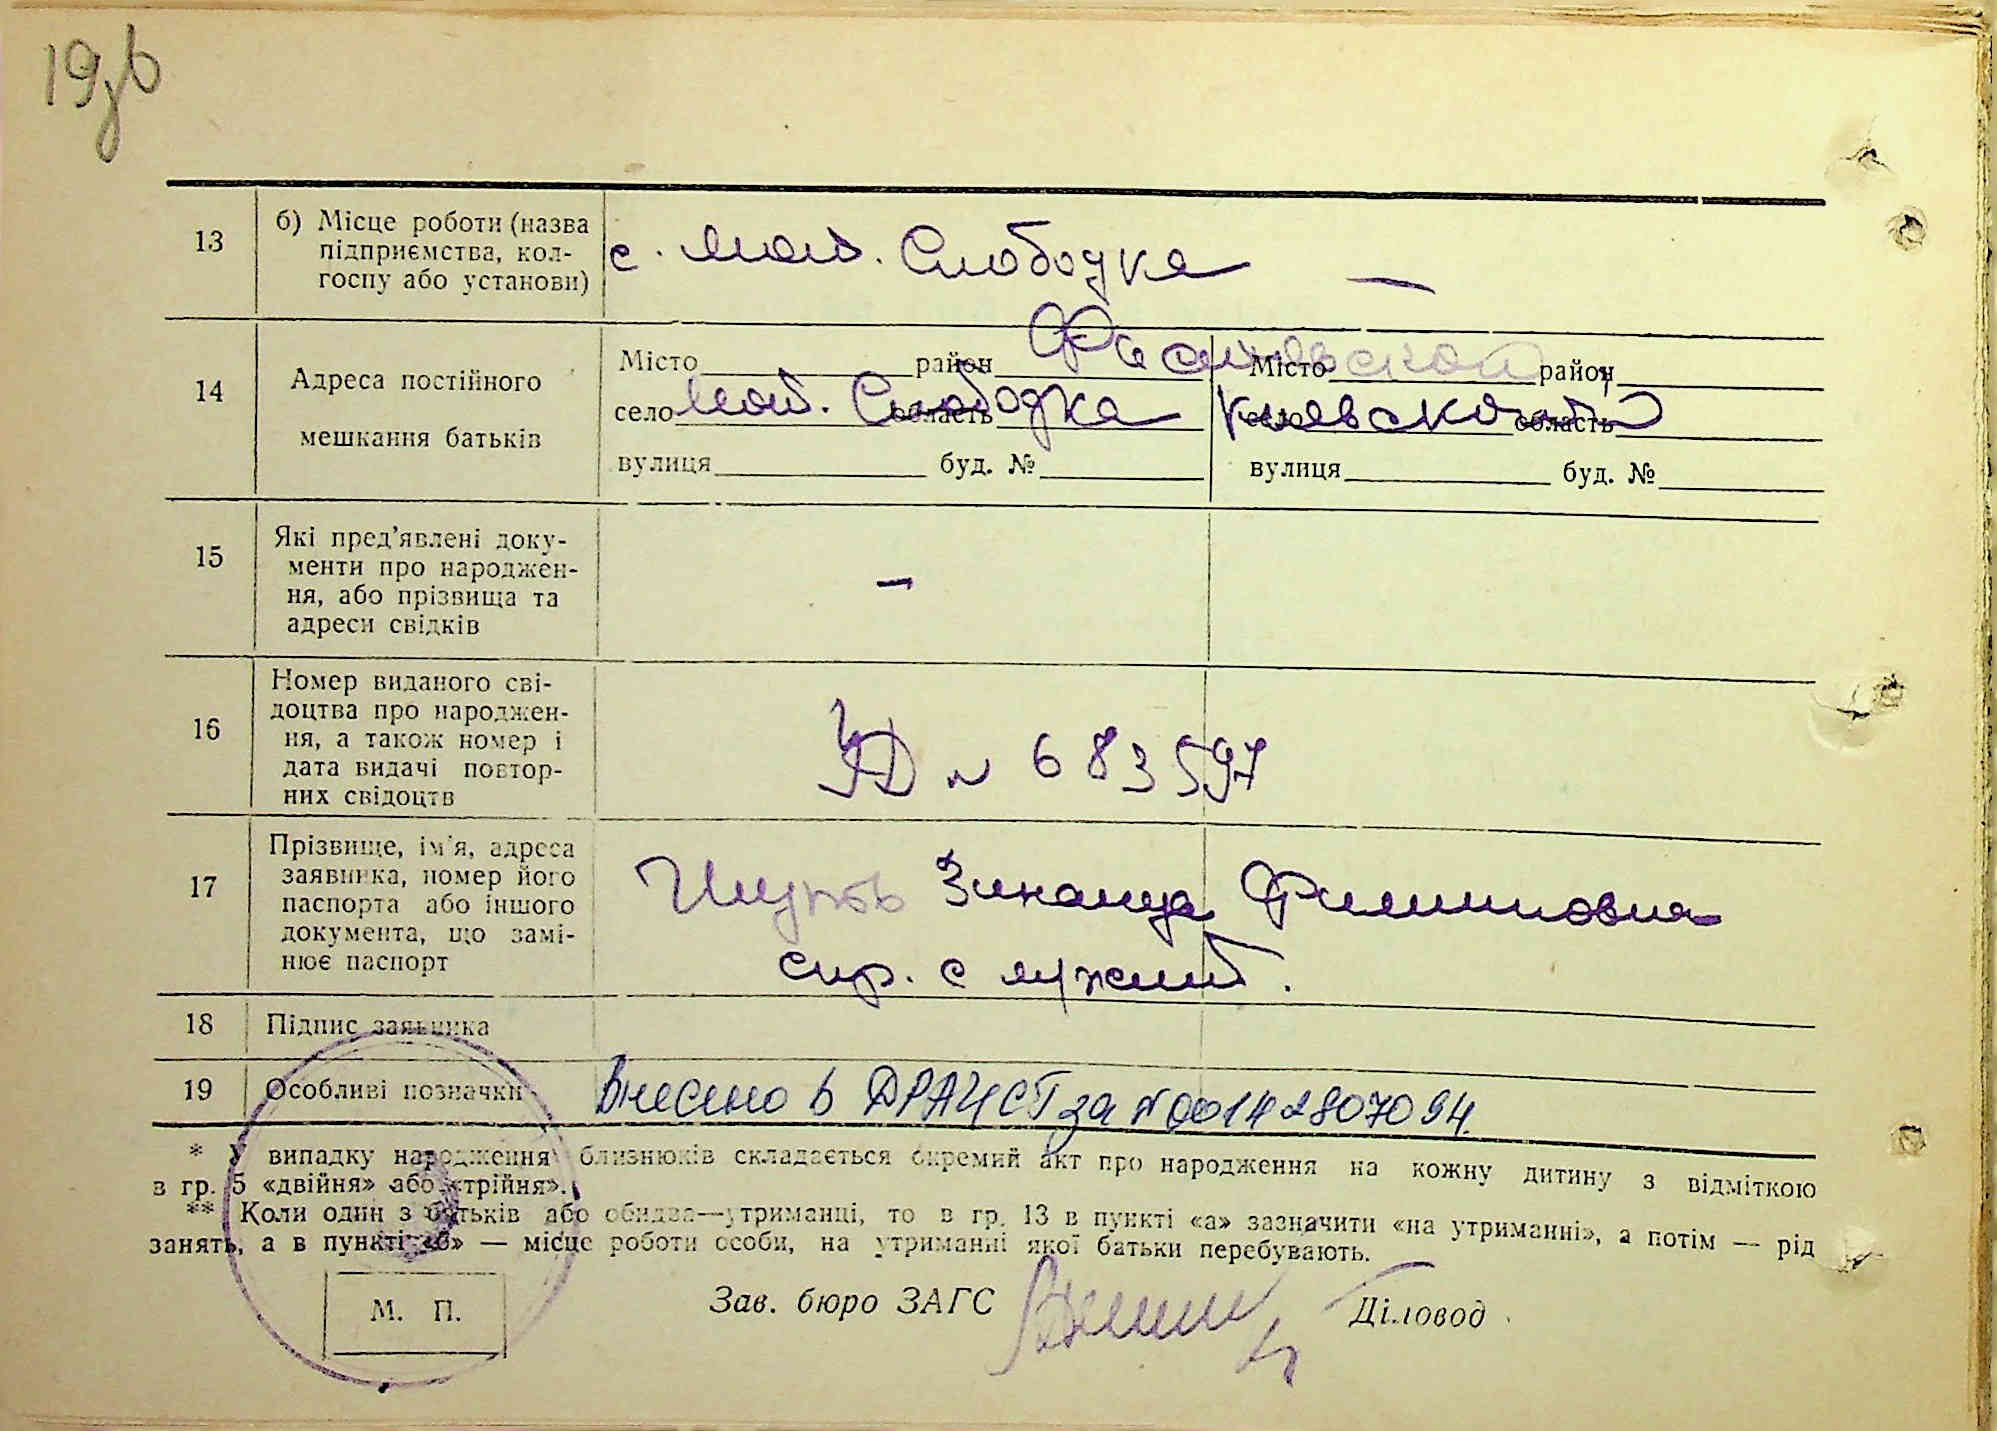 19зв
13
б) Місце роботи (назва
підприємства, кол-
госпу або установи)
с. Мот. Слободка —
14
Адреса постійного
мешкання батьків
Місто район
село Мот. Слободка область
вулиця буд. №
Місто район
село Киевской область
вулиця буд. №
15
Які пред'явлені доку-
менти про народжен-
ня, або прізвища та
адреси свідків
—
16
Номер виданого сві-
доцтва про народжен-
ня, а також номер і
дата видачі повтор-
них свідоцтв
№ 683597
17
Прізвище, ім'я, адреса
заявника, номер його
паспорта або іншого
документа, що замі-
нює паспорт
Зинаида Филипповна
спр. с
18
Підпис заявника
19
Особливі позначки
Внесено в ДРАЦСГ за №00142807094.
* У випадку народження близнюків складається окремий акт про народження на кожну дитину з відміткою
в гр. 5 «двійня» або «трійня».
** Коли один з батьків або обидва—утриманці, то в гр. 13 в пункті «а» зазначити «на утриманні», а потім — рід
занять, а в пункті «б» — місце роботи особи, на утриманні якої батьки перебувають.
М. П.
Зав. бюро ЗАГС
Діловод